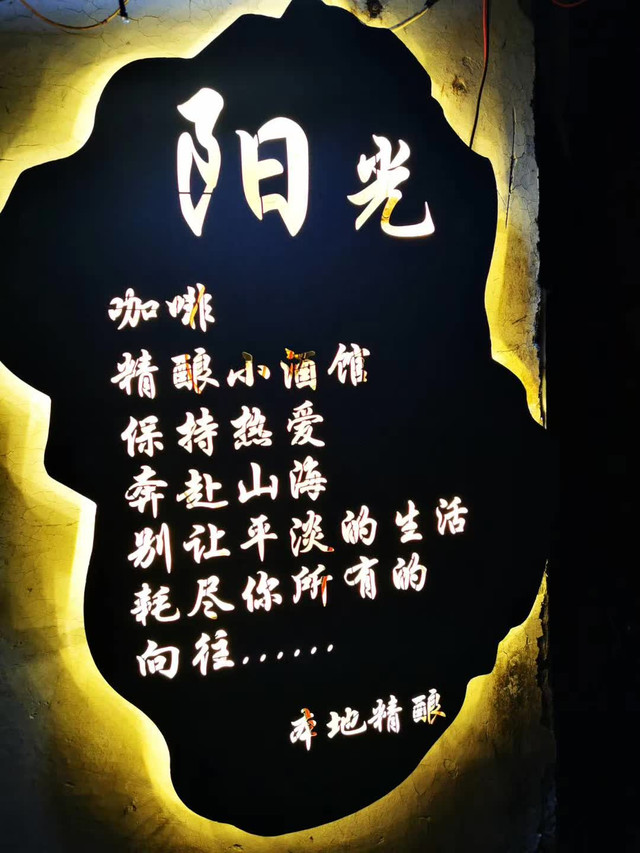 阳光
咖啡
精酿小酒馆
保持热爱
奔赴山海
别让平淡的生活
耗尽你所有的
向往......
本地精酿